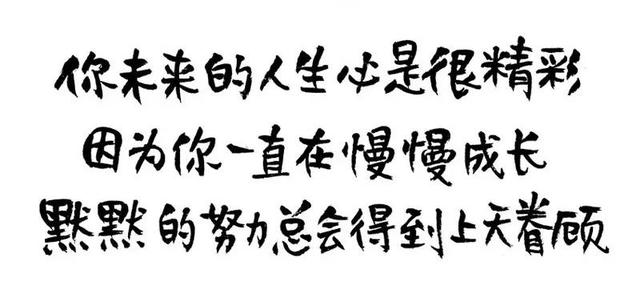 你未来的人生必是很精彩
因为你一直在慢慢成长
默默的努力总会得到上天眷顾